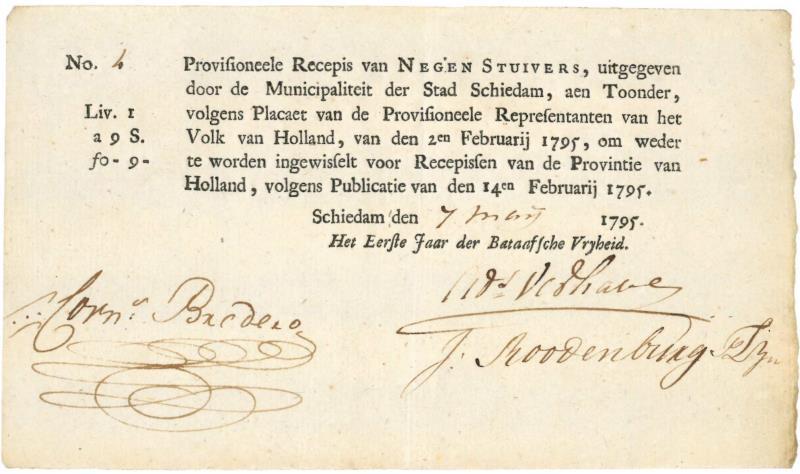 No. 4 Provisioneele Recepis van NEGEN STUIVERS, uitgegeven
door de Municipaliteit der Stad Schiedam, aen Toonder,
Liv. 1 volgens Placaet van de Provisioneele Representanten van het
a 9 S. Volk van Holland, van den 2en Februarij 1795, om weder
fo- 9- te worden ingewisselt voor Recepissen van de Provintie van
Holland, volgens Publicatie van den 14en Februarij 1795.
Schiedam den 7 Maij 1795.
Het Eerste Jaar der Bataafsche Vryheid.
Corns. Bredero
J. Roodenburg